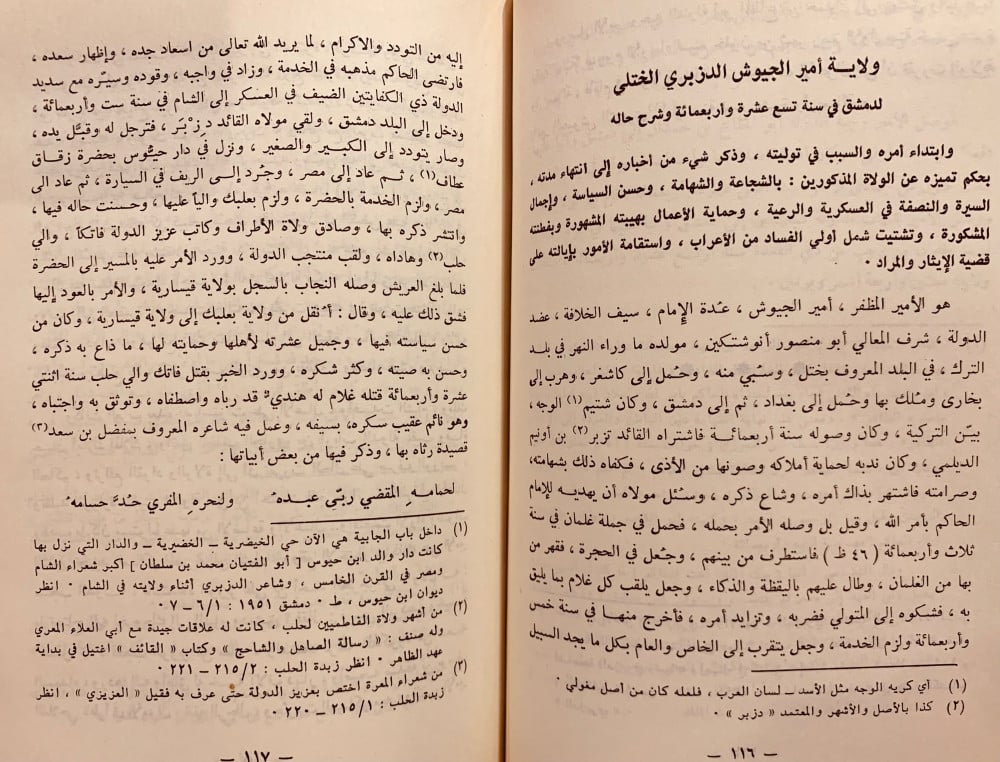 ولاية أمير الجيوش الدزبري الختلي
لدمشق في سنة تسع عشرة وأربعمائة وشرح حاله
وابتداء أمره والسبب في توليته ، وذكر شيء من أخباره إلى انتهاء مدته ،
بحكم تميزه عن الولاة المذكورين : بالشجاعة والشهامة ، وحسن السياسة ، وإجمال
السيرة والنصفة في العسكرية والرعية ، وحماية الأعمال بهيبته المشهورة ويقظته
المشكورة ، وتشتيت شمل أولي الفساد من الأعراب ، واستقامة الأمور بإيالته على
قضية الإيثار والمراد ٠
هو الأمير المظفر ، أمير الجيوش ، عدّة الإمام ، سيف الخلافة ، عضد
الدولة ، شرف المعالي أبو منصور أنوشتكين ، مولده ما وراء النهر في بلد
الترك ، في البلد المعروف بختل ، وسُبي منه ، وحُمل إلى كاشغر ، وهرب إلى
بخارى ومُلك بها وحُمل إلى بغداد ، ثم إلى دمشق ، وكان شتيم(١) الوجه ،
بيّن التركية ، وكان وصوله سنة أربعمائة فاشتراه القائد تزبر(٢) بن أونيم
الديلمي ، وكان ندبه لحماية أملاكه وصونها من الأذى ، فكفاه ذلك بشهامته،
وصرامته فاشتهر بذاك أمره ، وشاع ذكره ، وسُئل مولاه أن يهديه للإمام
الحاكم بأمر الله ، وقيل بل وصله الأمر بحمله ، فحمل في جملة غلمان في سنة
ثلاث وأربعمائة ( ٤٦ ظ ) فاستطرف من بينهم ، وجُعل في الحجرة ، فقهر من
بها من الغلمان ، وطال عليهم باليقظة والذكاء ، وجعل يلقب كل غلام بما يليق
به ، فشكوه إلى المتولي فضربه ، وتزايد أمره ، فأخرج منهـا في سنة خمس
وأربعمائة ولزم الخدمة ، وجعل يتقرب إلى الخاص والعام بكل ما يجد السبيل
(١) أي كريه الوجه مثل الأسد ــ لسان العرب ، فلعله كان من أصل مغولي ٠
(٢) كذا بالأصل والأشهر والمعتمد « دزبر » ٠
— ١١٦ —
إليه من التودد والاكرام ، لما يريد الله تعالى من اسعاد جده ، وإظهار سعده ،
فارتضى الحاكم مذهبه في الخدمة ، وزاد في واجبه ، وقوده وسيّره مع سديد
الدولة ذي الكفايتين الضيف في العسكر إلى الشام في سنة ست وأربعمائة ،
ودخل إلى البلد دمشق ، ولقي مولاه القائد دِزْبَر ، فترجل له وقبّل يده ،
وصار يتودد إلى الكبير والصغير ، ونزل في دار حيّوس بحضرة زقاق
عطاف(١) ، ثم عاد إلى مصر ، وجُرد إلى الريف في السيارة ، ثم عاد الى
مصر ، ولزم الخدمة بالحضرة ، ولزم بعلبك والياً عليها ، وحسنت حاله فيها ،
وانتشر ذكره بها ، وصادق ولاة الأطراف وكاتب عزيز الدولة فاتكاً ، والي
حلب(٢) وهاداه ، ولقب منتجب الدولة ، وورد الأمر عليه بالمسير إلى الحضرة
فلما بلغ العريش وصله النجاب بالسجل بولاية قيسارية ، والأمر بالعود إليها
فشق ذلك عليه ، وقال : أُنقل من ولاية بعلبك إلى ولاية قيسارية ، وكان من
حسن سياسته فيها ، وجميل عشرته لأهلها وحمايته لها ، ما ذاع به ذكره ،
وحسن به صيته ، وكثر شكره ، وورد الخبر بقتل فاتك والي حلب سنة اثنتي
عشرة وأربعمائة قتله غلام له هنديّ قد رباه واصطفاه ، وتوثق به واجتباه ،
وهو نائم عقيب سكره، بسيفه ، وعمل فيه شاعره المعروف بمفضل بن سعد(٣)
قصيدة رثاه بها ، وذكر فيها من بعض أبياتها :
لحمامهِ المقضي ربّى عبدهُ ولنحرهِ المفري حُدَّ حسامهُ
(١) داخل باب الجابية هي الآن حي الخيضرية ــ الخضيرية ــ والدار التي نزل بها
كانت دار والد ابن حيوس [ أبو الفتيان محمد بن سلطان ] أكبر شعراء الشام
ومصر في القرن الخامس ، وشاعر الدزبري أثناء ولايته في الشام ٠ انظر
ديوان ابن حيوس ، ط ٠ دمشق ١٩٥١ : ٦/١ ــ ٧ ٠
(٢) من أشهر ولاة الفاطميين لحلب ، كانت له علاقات جيدة مع أبي العلاء المعري
وله صنف : « رسالة الصاهل والشاحج » وكتاب « القائف » اغتيل في بداية
عهد الظاهر ٠ انظر زبدة الحلب : ٢١٥/٢ ــ ٢٢١ ٠
(٣) من شعراء المعرة اختص بعزيز الدولة حتى عرف به فقيل « العزيزي » ، انظر
زبدة الحلب : ٢١٥/١ ــ ٢٢٠ ٠
— ١١٧ —